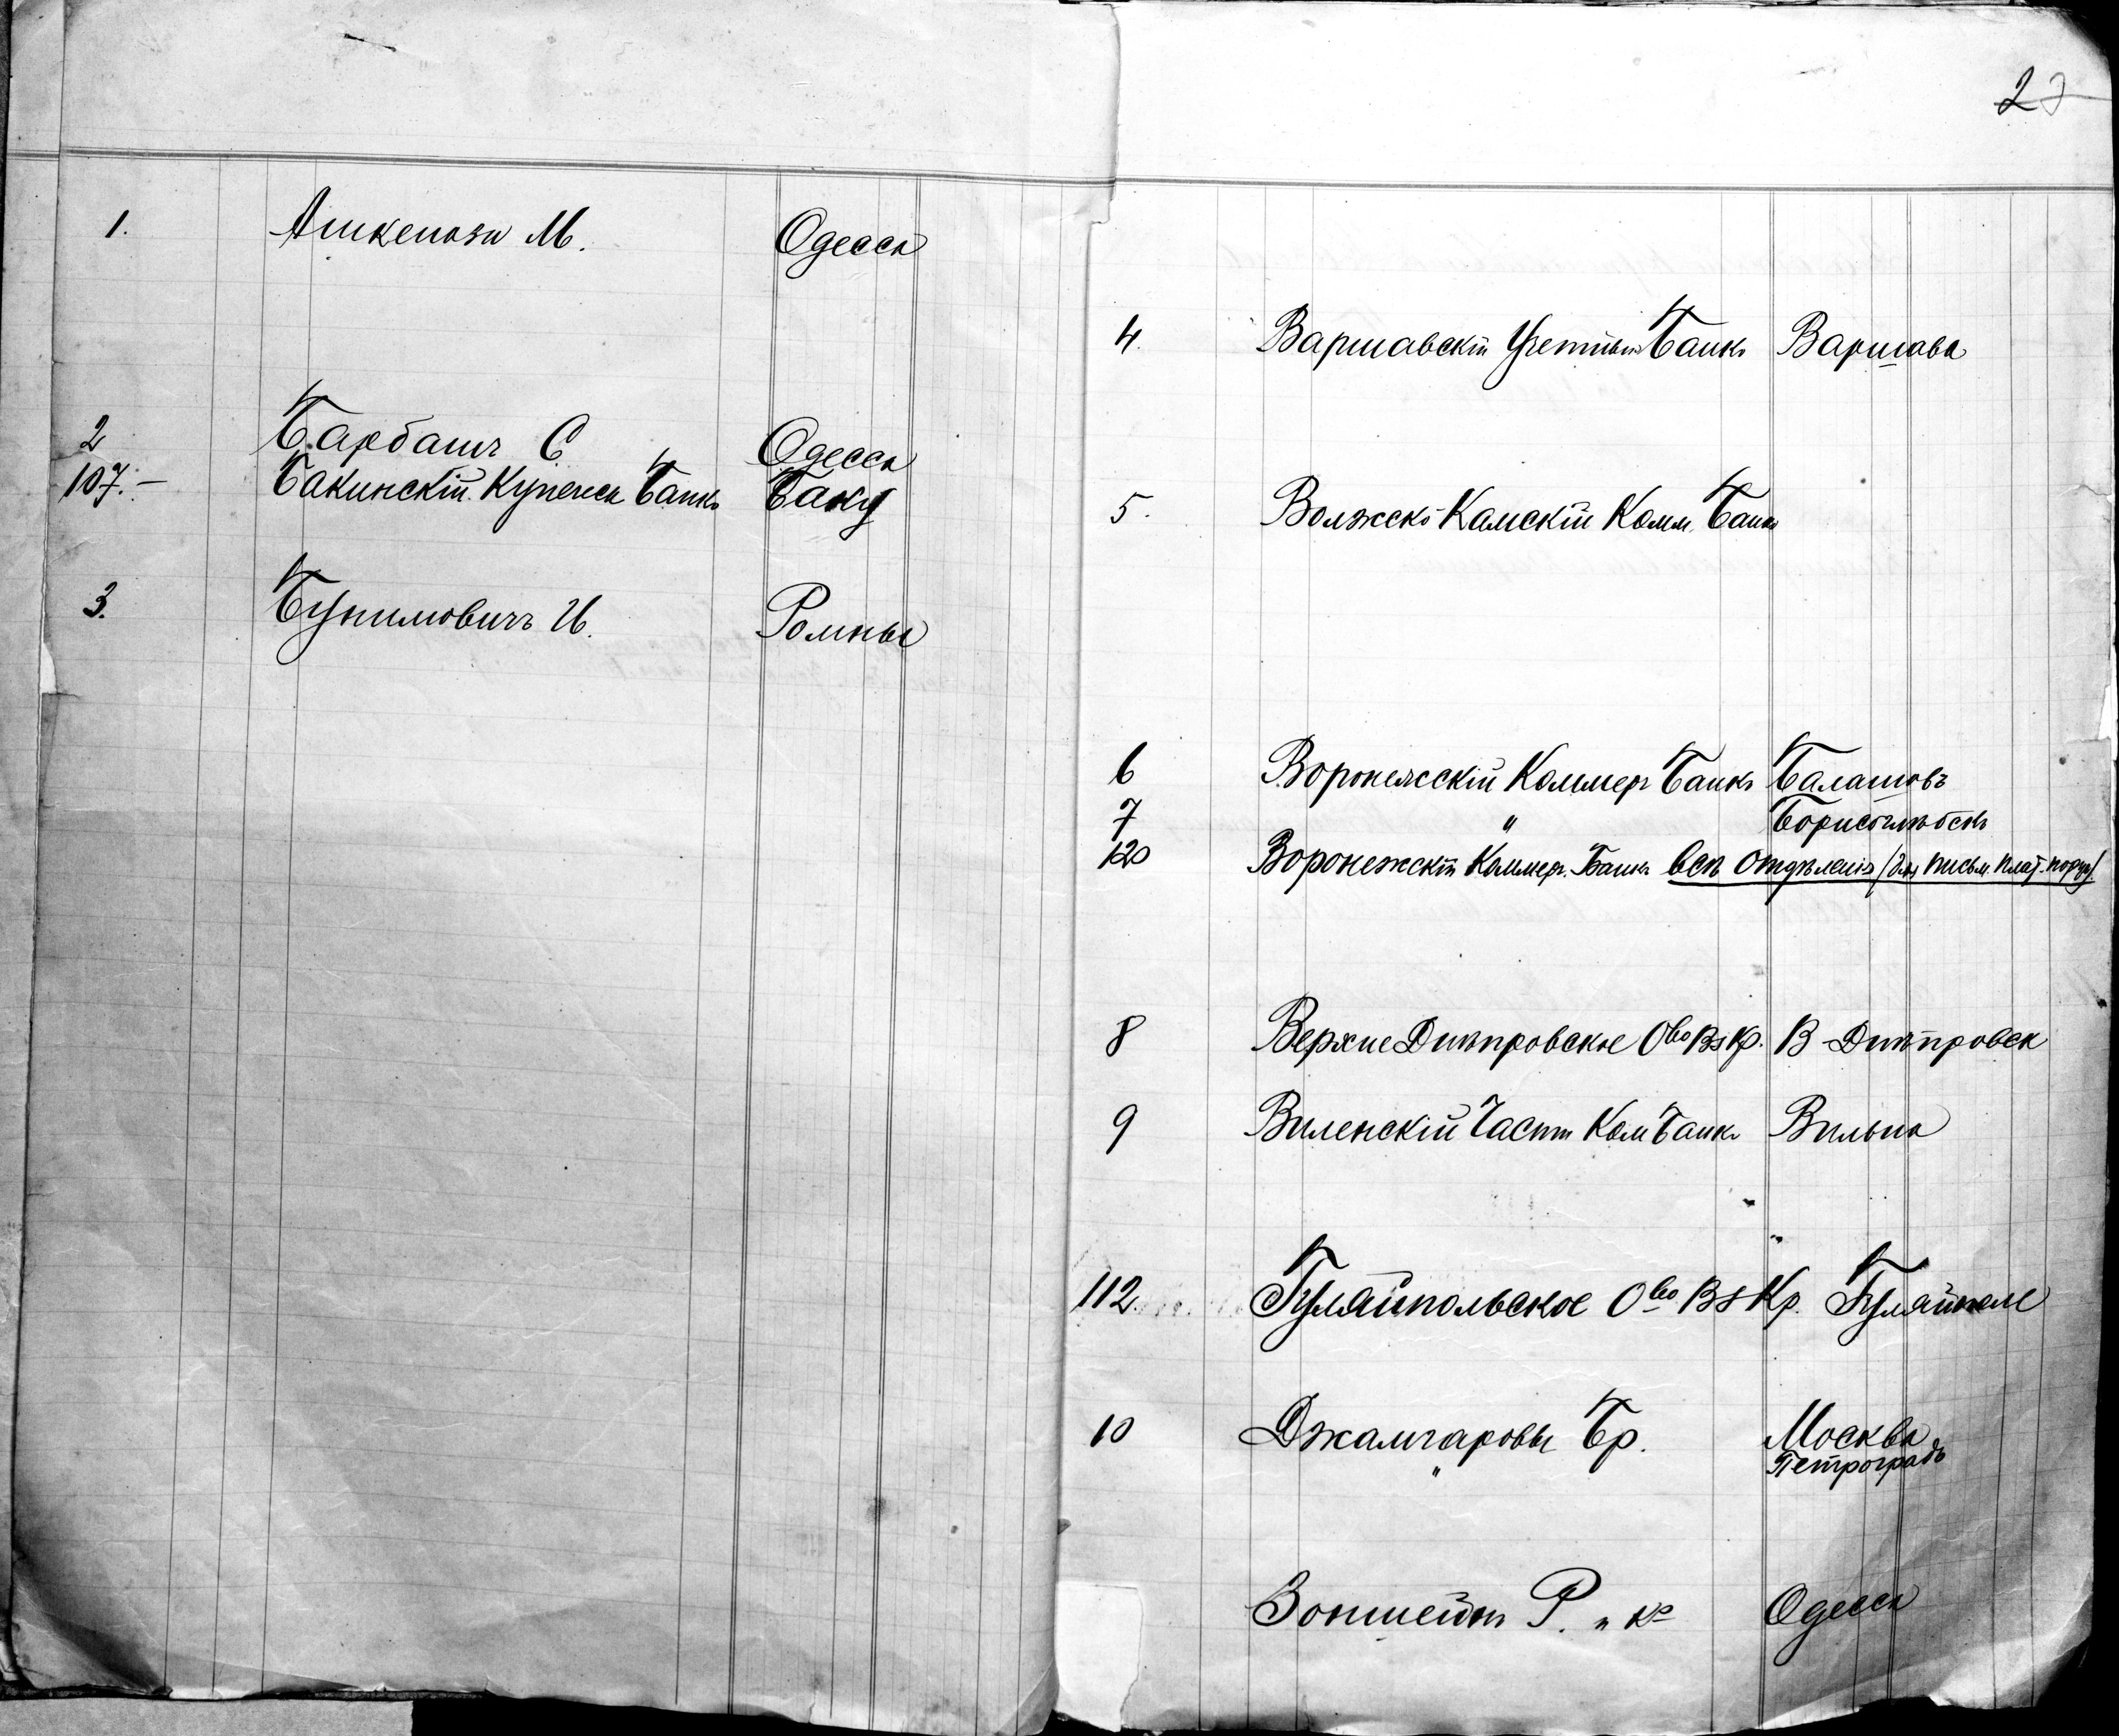 1. Ашкенази М. Одесса
2 Барбашъ С Одесса
107.- Бакинскій Купеческ Банкъ Баку
3. Бунимовичъ И. Ромны
2
4. Варшавскій Учетный Банкъ Варшава
5. Волжско Камскій Комм. Банкъ
6 Воронежскій Коммер Банкъ Балашовъ
7 " Борисоглѣбскъ
120 Воронежскій Коммер. Банкъ всѣ отдѣленія (для письм. плат. поруч.)
8 Верхне Днѣпровское Ово Вз Кр. В-Днѣпровск
9 Виленскій Частн Ком Банкъ Вильна
112. Гуляйпольское Ово Вз Кр. Гуляйполе
10 Джамгаровы Бр. Москва
" Петроградъ
Зонштейнъ Р. и Ко Одесса